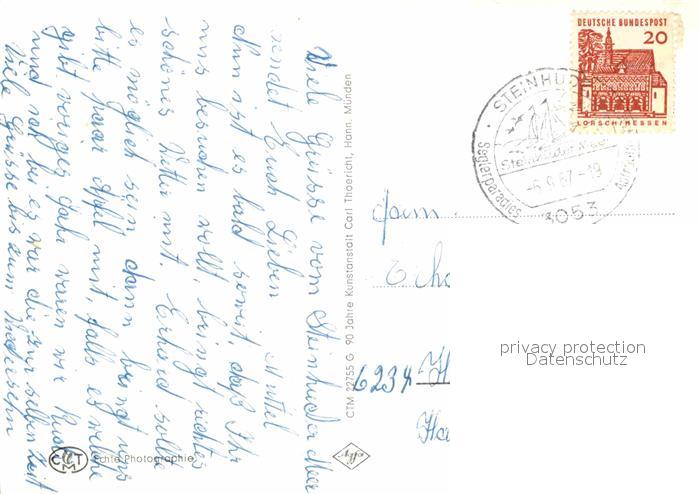 Viele Grüsse vom Steinhuder Meer
sendet Euch Lieben
Mutel
Nun ist es bald soweit, daß Ihr
uns besuchen wollt, bringt richtes
schönes Wetter mit. Erhard sollte
es möglich sein dann bringt uns
bitte paar Äpfel mit, falls es welche
gibt voriges Jahr waren wir
und ich bei es war die zur selben Zeit
Viele Grüsse bis zum Wiedersehn
CTM
Echte Photographie
CTM 22755 G 90 Jahre Kunstanstalt Carl Thoericht, Hann. Münden
Agfa
DEUTSCHE BUNDESPOST
20
LORSCH/HESSEN
STEINHUDE
Steinhuder Meer
-6.9.67-19
Seglerparadies
3053
Fam.
Erha
6234 H
Ha
privacy protection
Datenschutz